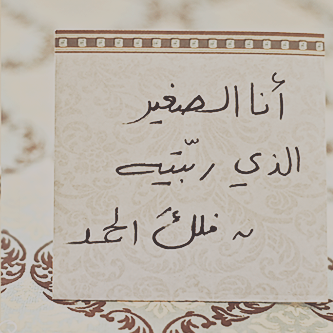 أنا الصغير
الذي ربّيته
فلكَ الحمد